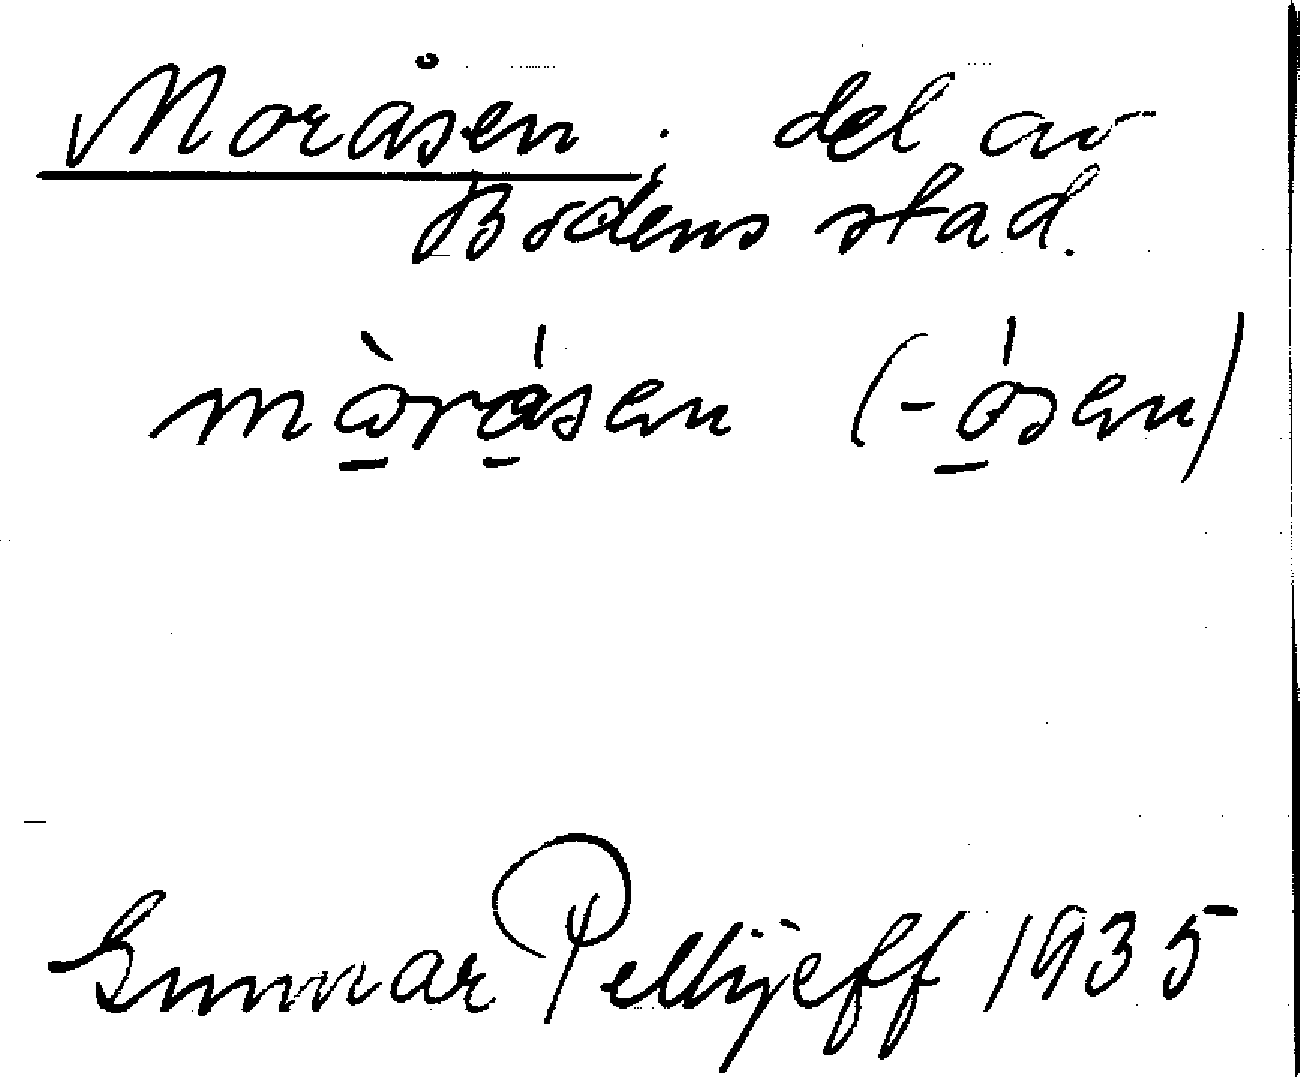 Moråsen; del av
Bodens stad.
mò̱rá̱sen (-ó̱sen)
Gunnar Pellijeff 1935